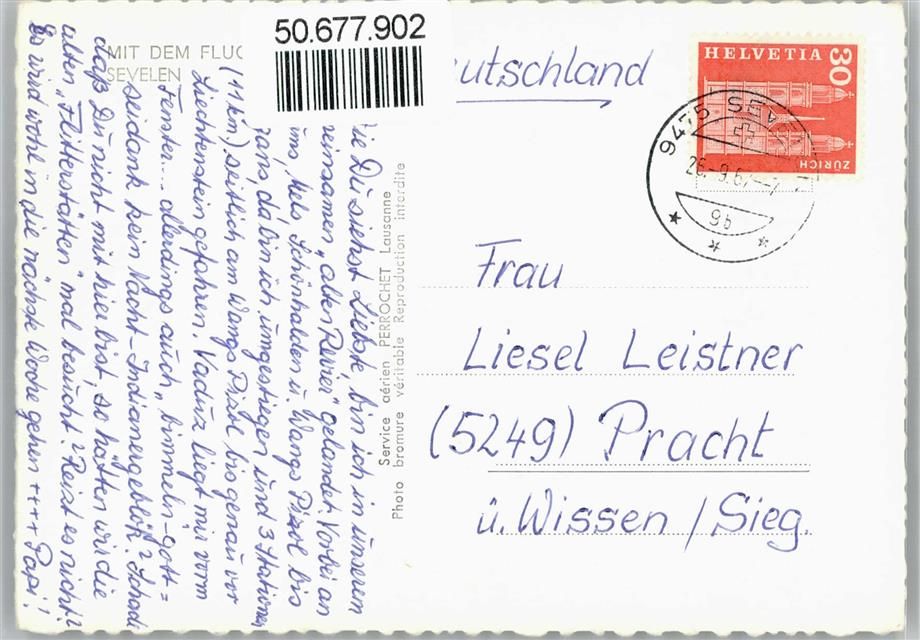 50.677.902
MIT DEM FLUG
SEVELEN
Deutschland
HELVETIA
30
ZÜRICH
9475 SEVELEN
26.-9.67--7
9b
Frau
Liesel Leistner
(5249) Pracht
ü. Wissen / Sieg.
Service aérien PERROCHET Lausanne
Photo bromure véritable Reproduction interdite
Wie Du siehst Liebste, bin ich in unserem
einsamen "alten Revier" gelandet. Vorbei an
uns, Mels, Schönhalden u. Wangs Pizol bis
Gans, da bin ich umgestiegen und 3 Stationen
(11 km) seitlich am Wangs Pizol, bis genau vor
Liechtenstein gefahren. Vaduz liegt mir vorm
Fenster... allerdings auch "bimmeln" - gott=
seidank kein Nacht-Indianergeblök? Schade
daß Du nicht mit hier bist, so hätten wir die
alten "Flitterstätten" mal besucht? Reist es nicht?
Es wird wohl in die nächste Woche gehen ++++ Papi!